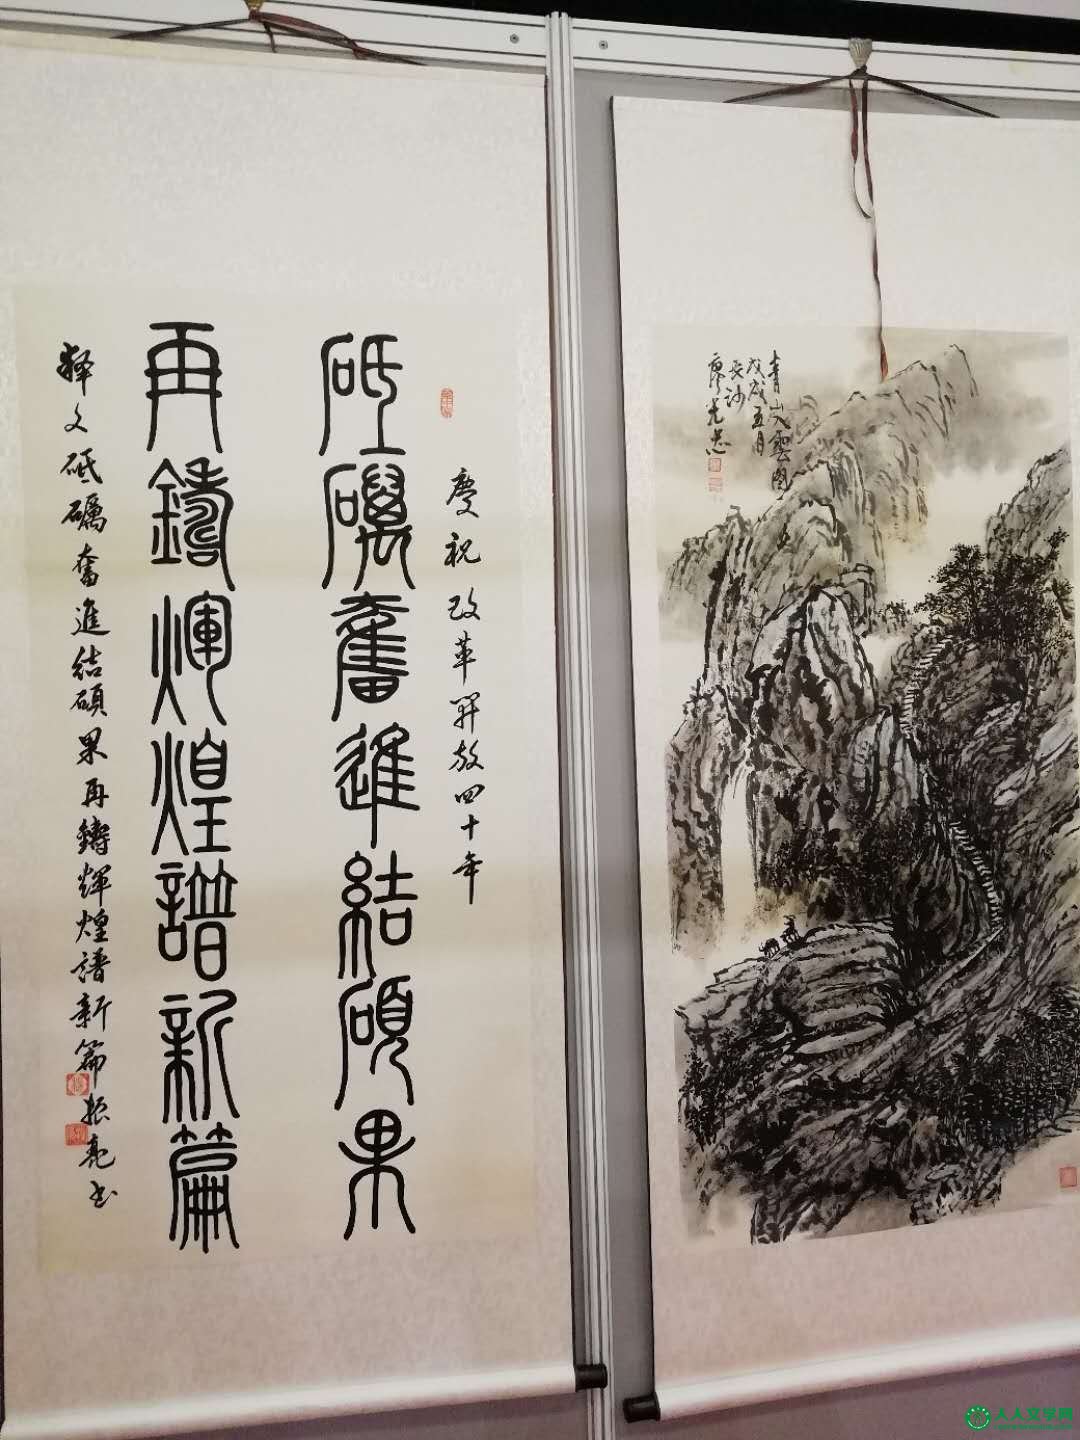 慶祝改革開放四十年
砥礪奮進結碩果
再鑄輝煌譜新篇
釋文砥礪奮進結碩果再鑄輝煌譜新篇 振亮书
青山入雲图
戊戌五月
长沙
廖光忠
人人文学网